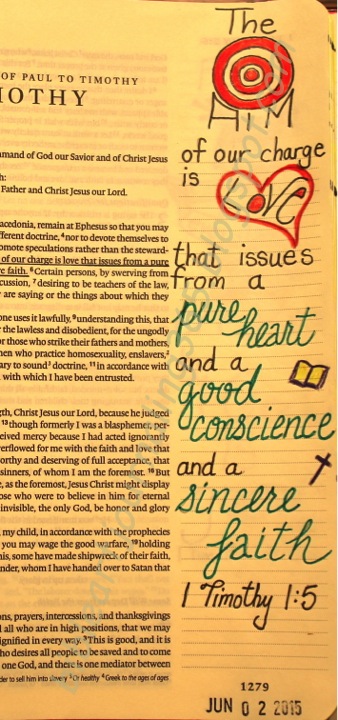 OF PAUL TO TIMOTHY
OTHY
mmand of God our Savior and of Christ Jesus
h:
Father and Christ Jesus our Lord.
acedonia, remain at Ephesus so that you may
fferent doctrine, 4 nor to devote themselves to
omote speculations rather than the steward-
of our charge is love that issues from a pure
re faith. 6 Certain persons, by swerving from
cussion, 7 desiring to be teachers of the law,
are saying or the things about which they
one uses it lawfully, 9 understanding this, that
the lawless and disobedient, for the ungodly
or those who strike their fathers and mothers,
men who practice homosexuality, enslavers,2
ary to sound3 doctrine, 11 in accordance with
with which I have been entrusted.
gth, Christ Jesus our Lord, because he judged
13 though formerly I was a blasphemer, per-
ceived mercy because I had acted ignorantly
verflowed for me with the faith and love that
orthy and deserving of full acceptance, that
sinners, of whom I am the foremost. 16 But
e, as the foremost, Jesus Christ might display
ose who were to believe in him for eternal
invisible, the only God, be honor and glory
my child, in accordance with the prophecies
you may wage the good warfare, 19 holding
his, some have made shipwreck of their faith,
nder, whom I have handed over to Satan that
ons, prayers, intercessions, and thanksgivings
d all who are in high positions, that we may
ignified in every way. 3 This is good, and it is
ho desires all people to be saved and to come
one God, and there is one mediator between
der to sell him into slavery 3 Or healthy 4 Greek to the ages of ages
The
AIM
of our charge
is
LOVE
that issues
from a
pure
heart
and a
good
conscience
and a
sincere
faith
1 Timothy 1:5
1279
JUN 02 2015